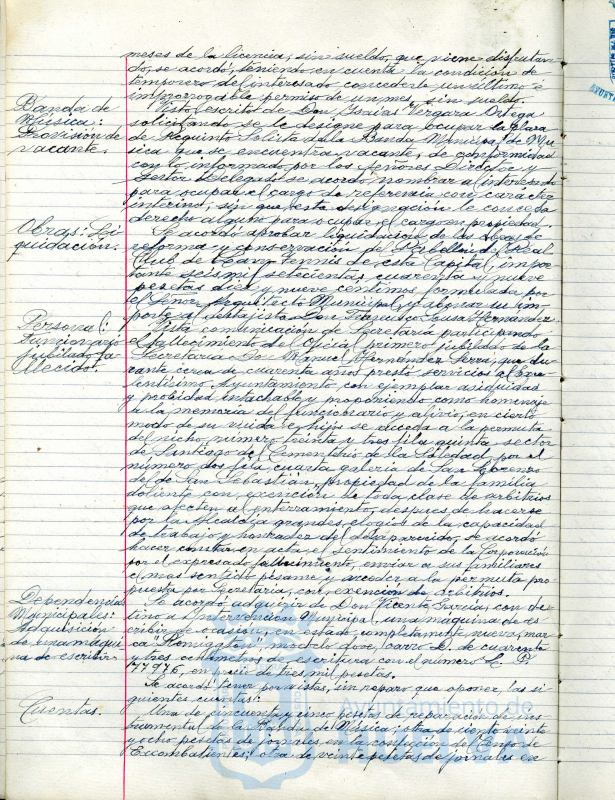 meses de la licencia, sin sueldo, que viene disfrutan-
do, se acordó, teniendo en cuenta la condición de
temporero del interesado concederle un último e
improrrogable permiso de un mes, sin sueldo.
Banda de
Música:
Provisión de
vacante.
Visto escrito de Don Isaias Vergara Ortega
solicitando se le designe para ocupar la plaza
de Requinto Solista de la Banda Municipal de Mú-
sica que se encuentra vacante, de conformidad
con lo informado por los Señores Director y
Gestor Delegado se acordó nombrar al interesado
para ocupar el cargo de referencia con carácter
interino, sin que esta designación le conceda
derecho alguno para ocupar el cargo en propiedad.
Obras: Li-
quidación.
Se acordó aprobar liquidación de las obras de
reforma y conservación del Pabellón del Real
Club de Lawn Tennis de esta Capital, impor-
tante seis mil setecientas cuarenta y nueve
pesetas diez y nueve céntimos, formulada por
el Señor Arquitecto Municipal, y abonar su im-
porte al destajista Don Francisco Sousa Hernández.
Personal:
Funcionario
jubilado fa-
llecido.
Vista comunicación de Secretaría participando
el fallecimiento del Oficial primero jubilado de la
Secretaría Don Manuel Hernández Serra, que du-
rante cerca de cuarenta años prestó servicios al Exce-
lentísimo Ayuntamiento con ejemplar asiduidad
y probidad intachable y proponiendo como homenaje
a la memoria del funcionario y alivio, en cierto
modo de su viuda e hijos se acceda a la permuta
del nicho número treinta y tres fila quinta sector
de Santiago del Cementerio de la Soledad por el
número dos fila cuarta galería de San Lorenzo
de de San Sebastián, propiedad de la familia
doliente con exención de toda clase de arbitrios
que afecten al enterramiento, después de hacerse
por la Alcaldía grandes elogios de la capacidad
de trabajo y honradez del desaparecido, se acordó
hacer constar en acta el sentimiento de la Corporación
por el expresado fallecimiento, enviar a sus familiares
el mas sentido pésame y acceder a la permuta pro-
puesta por Secretaría, con exención de arbitrios.
Dependencias
Municipales:
Adquisición
de una máqui-
na de escribir.
Se acordó adquirir de Don Vicente García, con des-
tino a Intervención Municipal, una máquina de es-
cribir de ocasión, en estado completamente nuevo, mar-
ca "Remigton", modelo doce, carro L, de cuarenta
y tres centímetros de escritura con el número L.
77976, en precio de tres mil pesetas.
Cuentas.
Se acordó tener por vistas, sin reparo que oponer, las si-
guientes cuentas:
Una de cincuenta y cinco pesetas de reparación de ins-
trumental de la Banda de Música; otra de ciento veinte
y ocho pesetas de jornales en la confección del Censo de
Excombatientes; otra de veinte pesetas de jornales en
Ayuntamiento de